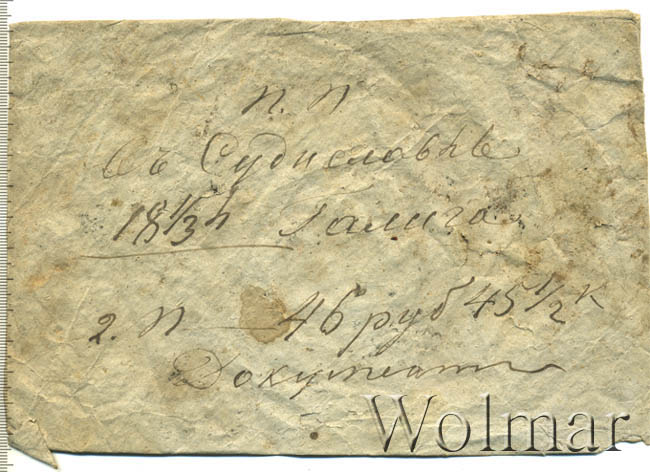 П. П
Съ Судиславля
18 1/3 h Галича
2. П 46 руб 45 1/2 к
Документъ
Wolmar